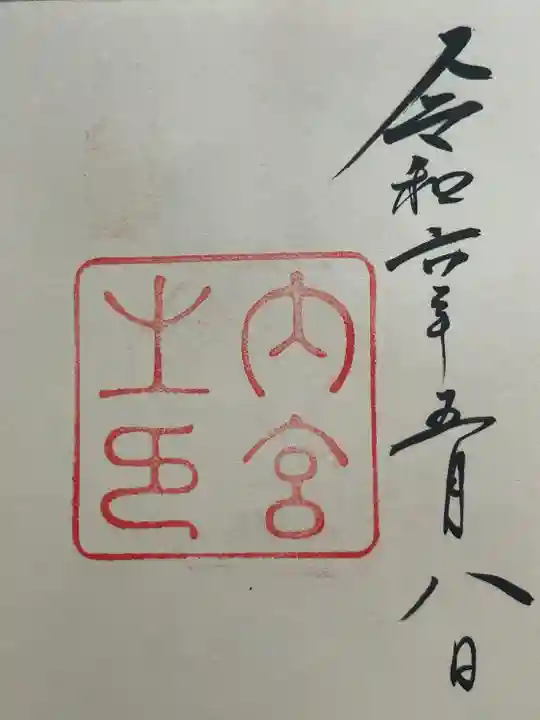 令和六年五月八日
内宮
之印